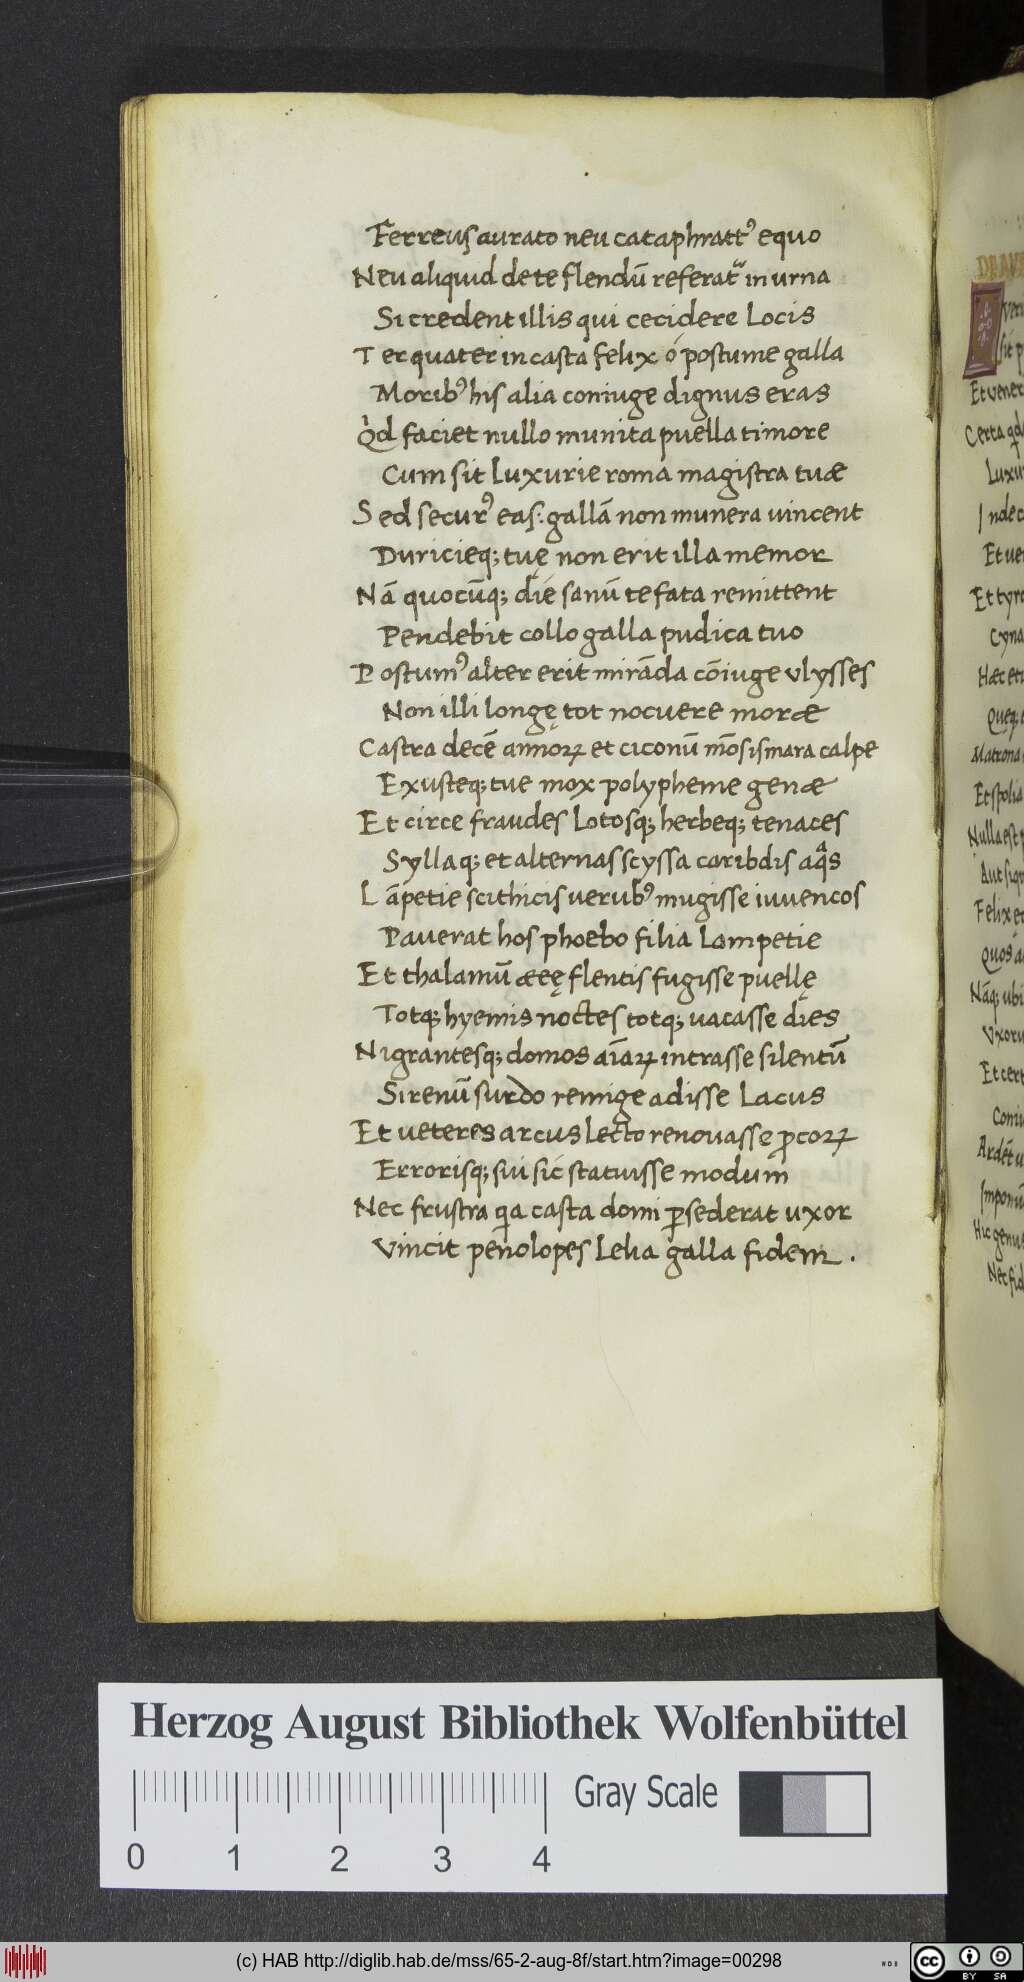 Ferreus aurato neu cataphratt᾽ equo
Neu aliquid de te flendū referat᷑ in urna
Si credent illis qui cecidere Locis
Ter quater in casta felix ó postume galla
Morib᾽ his alia coniuge dignus eras
Qd faciet nullo munita puella timore
Cum sit Luxurie roma magistra tuæ
Sed secur᾽ eas: gallā non munera uincent
Duricieq; tuę non erit illa memor
Nā quocūq; die sanū te fata remittent
Pendebit collo galla pudica tuo
Postum᾽ alter erit mirāda cōiuge ulysses
Non illi longę tot nocuere moræ
Castra decē annoꝝ et ciconū mōs ismara calpe
Exusteq; tue mox polypheme genæ
Et circe fraudes Lotosq; herbeq; tenaces
Syllaq; et alternas scyssa caribdis aqᷓs
Lāpetie scithicis verub᾽ mugisse iuuencos
Pauerat hos phoebo filia Lampetie
Et thalamū æeę flentis fugisse puellę
Totq; hyemis noctes totq; uacasse dies
Nigrantesq; domos aīaꝝ intrasse silentū
Sirenū surdo remige adisse Lacus
Et ueteres arcus lecto renouasse ꝓcoꝝ
Errorisq; sui sic statuisse modum
Nec frustra qa casta domi ꝑsederat uxor
Vincit penolopes Lelia galla fidem .
Et uener
Certa qd
Luxu
Indec
Et ue
Et tyro
Cyna
Hæc eti
Queq;
Matrona
Et spolia
Nulla est
Aut siqu
Felix eo
Quos
Nāq; ubi
Vxoru
Et cert
Coniu
Ardēt u
Imponū
Hic genus
Nec fid
Herzog August Bibliothek Wolfenbüttel
Gray Scale
0 1 2 3 4
(c) HAB http://diglib.hab.de/mss/65-2-aug-8f/start.htm?image=00298
cc BY SA